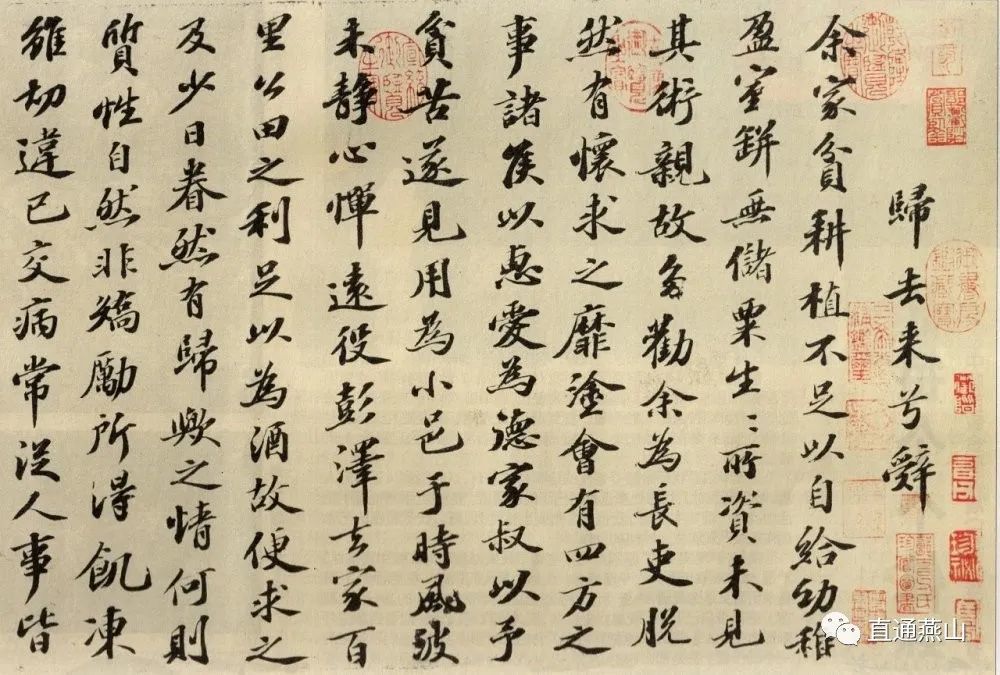 歸去来兮辭
余家貧耕植不足以自給幼稚
盈室缾無儲粟生〻所資未見
其術親故多勸余為長吏脫
然有懷求之靡塗會有四方之
事諸侯以惠愛為德家叔以予
貧苦遂見用為小邑于時風波
未靜心憚遠役彭澤去家百
里公田之利足以為酒故便求之
及少日眷然有歸歟之情何則
質性自然非矯勵所得飢凍
雖切違己交病常從人事皆
直通燕山